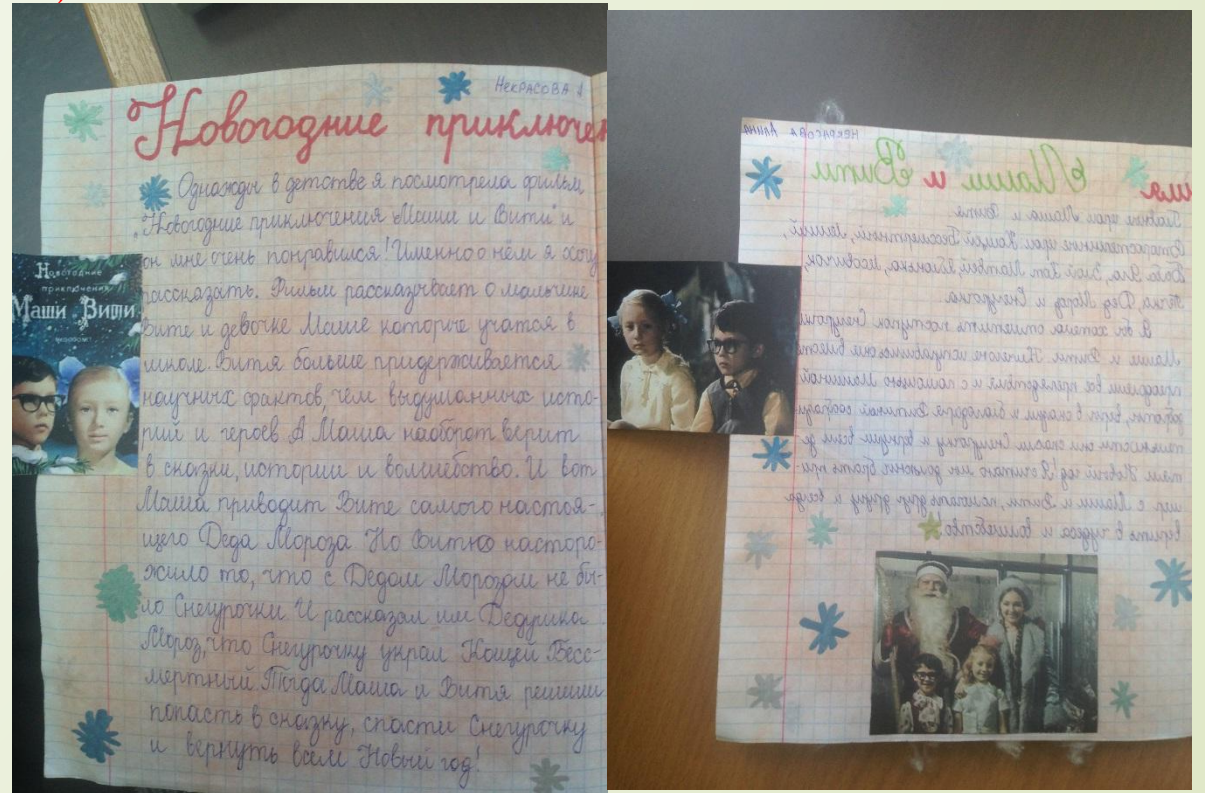 Некрасова А
Новогодние приключен
Однажды в детстве я посмотрела фильм,
"Новогодние приключения Маши и Вити" и
он мне очень понравился! Именно о нём я хочу
рассказать. Фильм рассказывает о мальчике
Вите и девочке Маше которые учатся в
школе. Витя больше придерживается
научных фактов, чем выдуманных исто-
рий и героев. А Маша наоборот верит
в сказки, истории и волшебство. И вот
Маша приводит Вите самого настоя-
щего Деда Мороза Но Витю насторо-
жило то, что с Дедом Морозом не бы-
ло Снегурочки И рассказал им Дедушка
Мороз, что Снегурочку украл Кощей Бесс-
мертный. Тогда Маша и Витя решили
попасть в сказку, спасти Снегурочку
и вернуть всем Новый год!
Новогодние
приключения
Маши и Вити
Некрасова Алина
ия Маши и Вити
Главные герои Маша и Витя.
Второстепенные герои Кощей Бессмертный, Леший,
Баба Яга, Злой Кот Матвей, Яблонька, Лесовичок,
Печка, Дед Мороз и Снегурочка.
Я бы хотела отметить поступок Снегурочки
Маши и Вити. Они вместе
преодолели все препятствия и с помощью Машиной
доброты, веры в сказки и благодаря Витиной сообрази
тельности они спасли Снегурочку и вернули всем д
тям Новый год! Я считаю мы должны брать при
мер с Маши и Вити, помогать друг другу и всегда
верить в чудеса и волшебство